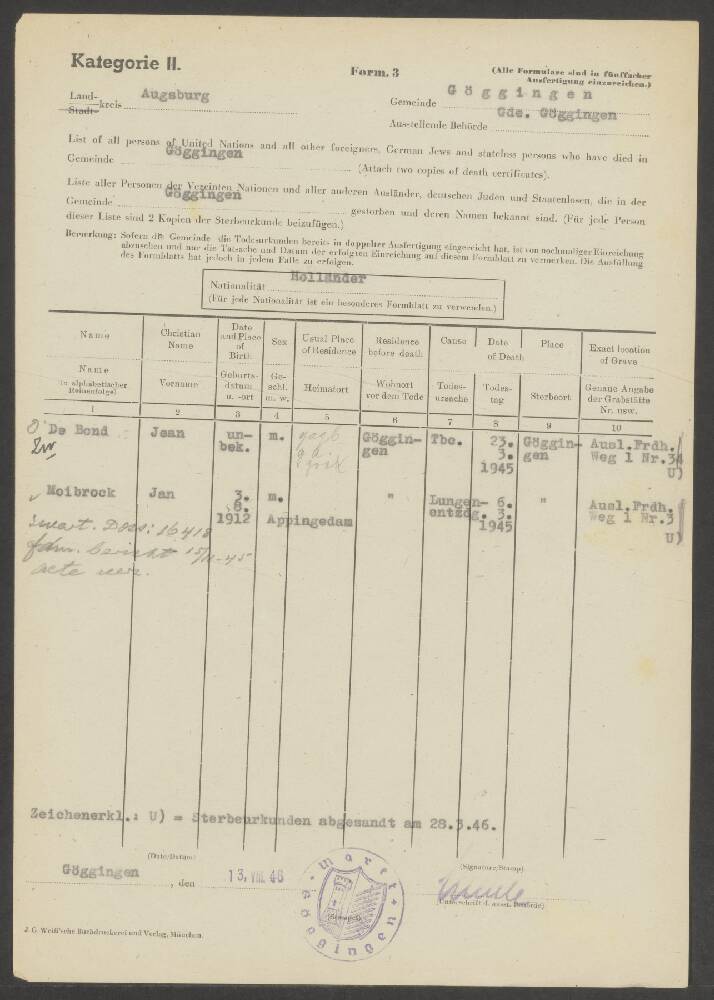 Kategorie II.
Form. 3
(Alle Formulare sind in fünffacher
Ausfertigung einzureichen.)
Land-
Stadt-
kreis Augsburg
Gemeinde Göggingen
Gde. Göggingen
Ausstellende Behörde
List of all persons of United Nations and all other foreigners, German Jews and stateless persons who have died in
Göggingen
Gemeinde (Attach two copies of death certificates).
Liste aller Personen der Vereinten Nationen und aller anderen Ausländer, deutschen Juden und Staatenlosen, die in der
Göggingen
Gemeinde gestorben und deren Namen bekannt sind. (Für jede Person
dieser Liste sind 2 Kopien der Sterbeurkunde beizufügen.)
Bemerkung: Sofern die Gemeinde die Todesurkunden bereits in doppelter Ausfertigung eingereicht hat, ist von nochmaliger Einreichung
abzusehen und nur die Tatsache und Datum der erfolgten Einreichung auf diesem Formblatt zu vermerken. Die Ausfüllung
des Formblatts hat jedoch in jedem Falle zu erfolgen.
Holländer
Nationalität
(Für jede Nationalität ist ein besonderes Formblatt zu verwenden.)
Name Christian Name Date and Place of Birth Sex Usual Place of Residence Residence before death Cause Date Place Exact location of Grave
of Death
Name (in alphabetischer Reihenfolge) Vorname Geburts-datum u. -ort Ge-schl. m. w. Heimatort Wohnort vor dem Tode Todes-ursache Todes-tag Sterbeort Genaue Angabe der Grabstätte Nr. usw.
1 2 3 4 5 6 7 8 9 10
De Bond Jean un- m. Göggin- Tbc. 23. Göggin- Ausl.Frdh.
bek. gen 3. gen Weg 1 Nr.34
1945 U)
Moibrock Jan 3. m. " Lungen- 6. " Ausl.Frdh.
8. entzdg. 3. Weg 1 Nr.3
1912 Appingedam 1945 U)
Doss: 16418
15/11-45
acte
Zeichenerkl.: U) = Sterbeurkunden abgesandt am 28.3.46.
(Date/Datum)
Göggingen, den 13. VIII. 46
(Signature/Stamp)
(Unterschrift d. ausst. Behörde)
Markt
Göggingen
J. G. Weiß'sche Buchdruckerei und Verlag, München.